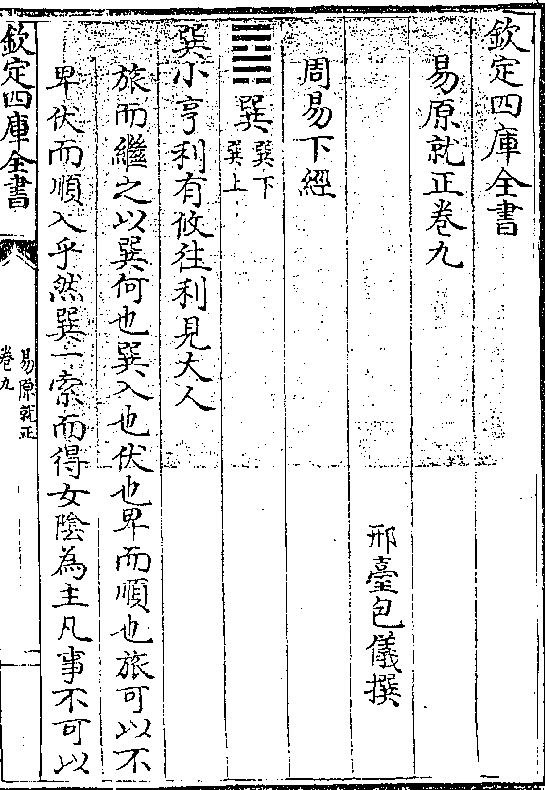 欽定四庫全書
易原就正卷九
邢臺包儀撰
周易下經
䷸巽巽下巽上
巽小亨利有攸往利見大人
旅而繼之以巽何也巽入也伏也卑而順也旅可以不
卑伏而順入乎然巽一索而得女陰為主凡事不可以
欽定四庫全書
易原就正
卷九